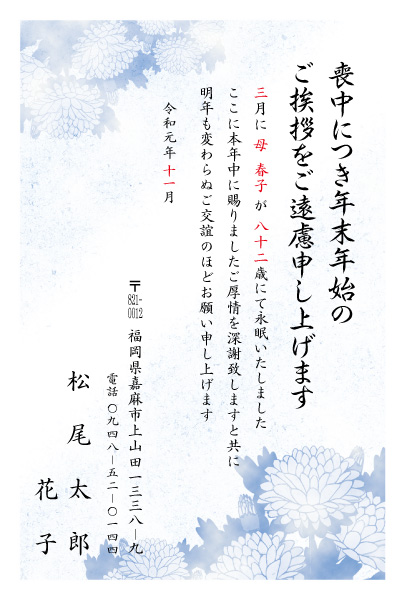 喪中につき年末年始の
ご挨拶をご遠慮申し上げます
三月に 母 春子 が 八十二歳にて永眠いたしました
ここに本年中に賜りましたご厚情を深謝致しますと共に
明年も変わらぬご交誼のほどお願い申し上げます
令和元年十一月
〒821-0012 福岡県嘉麻市上山田一三三八―九
電話 〇九四八―五二―〇一四四
松尾太郎
花子